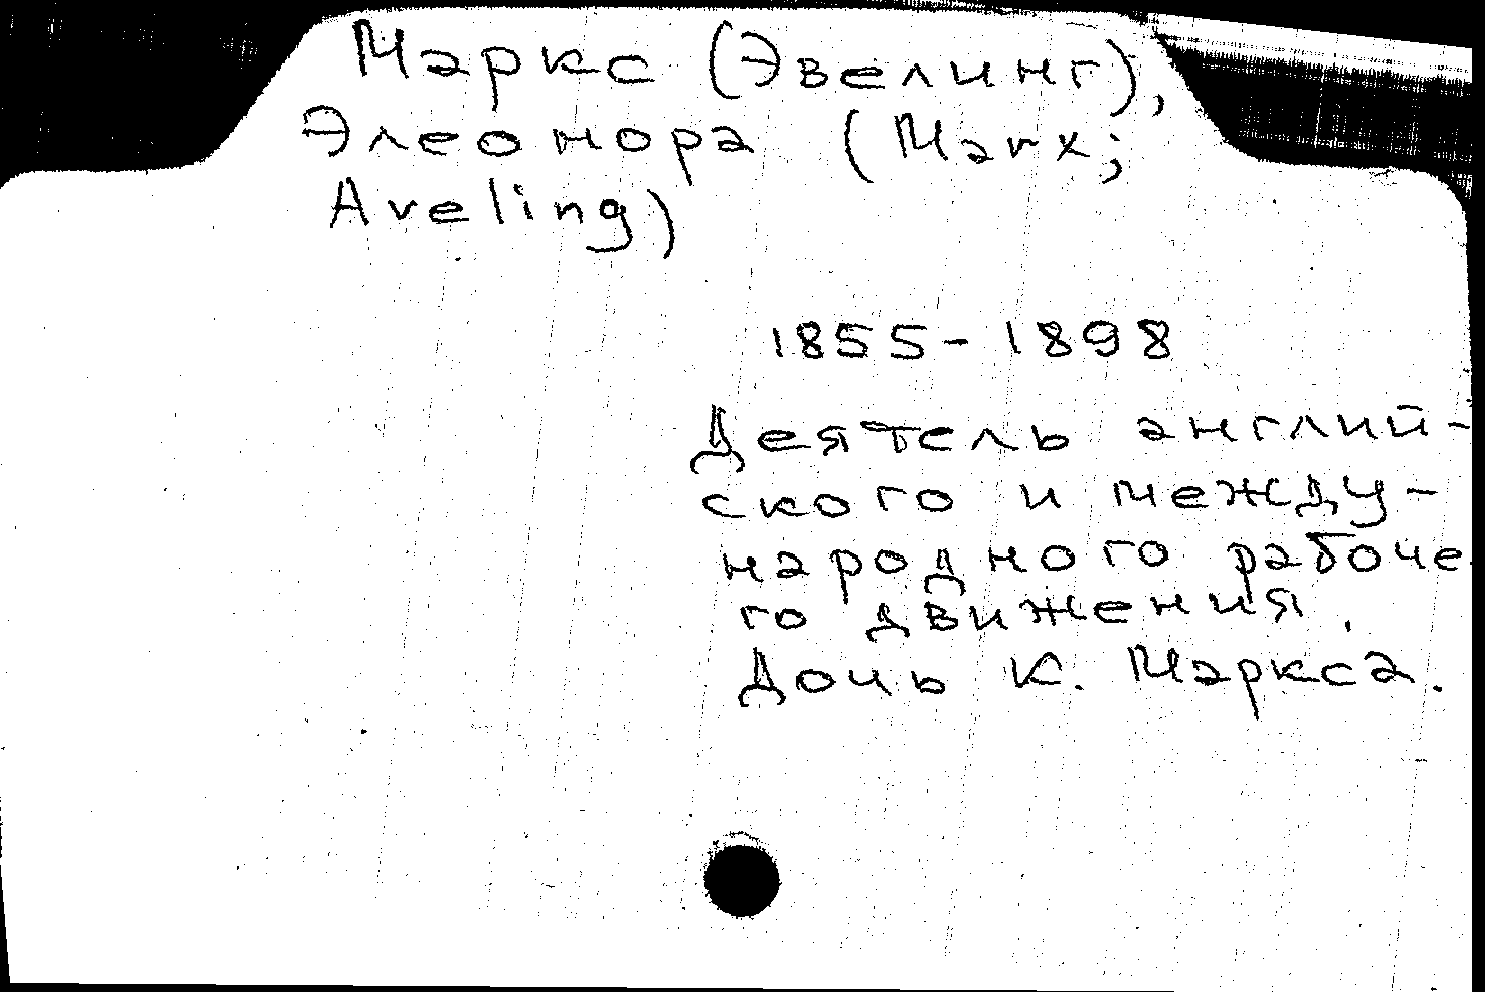 Маркс (Эвелинг),
Элеонора (Marx;
Aveling)
1855-1898
Деятель англий-
ского и между-
народного рабоче
го движения.
Дочь К. Маркса.